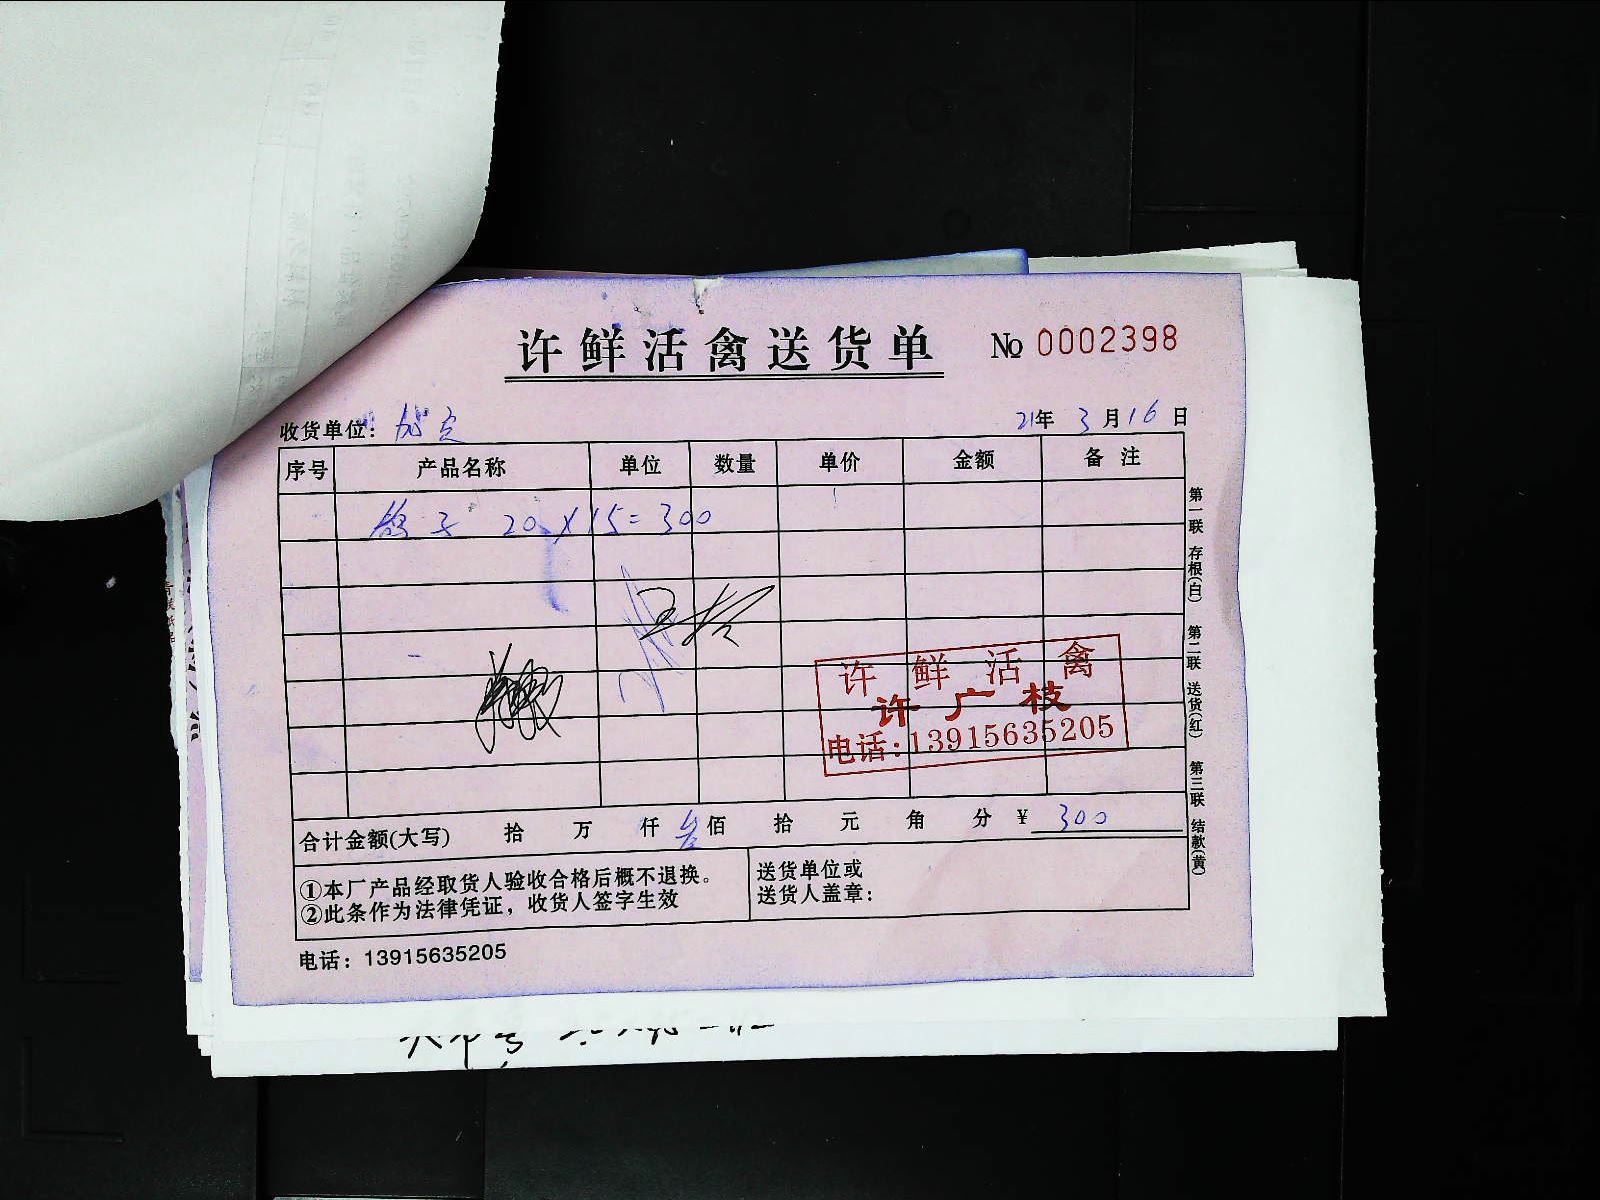 许鲜活禽送货单 № 0002398
收货单位: 21年 3月16日
序号 产品名称 单位 数量 单价 金额 备注
鸽子 20×15=300
许鲜活禽
许广枝
电话:13915635205
合计金额(大写) 拾 万 仟 叁佰 拾 元 角 分 ¥ 300
①本厂产品经取货人验收合格后概不退换。
②此条作为法律凭证，收货人签字生效
送货单位或
送货人盖章:
电话：13915635205
第一联 存根(白) 第二联 送货(红) 第三联 结款(黄)